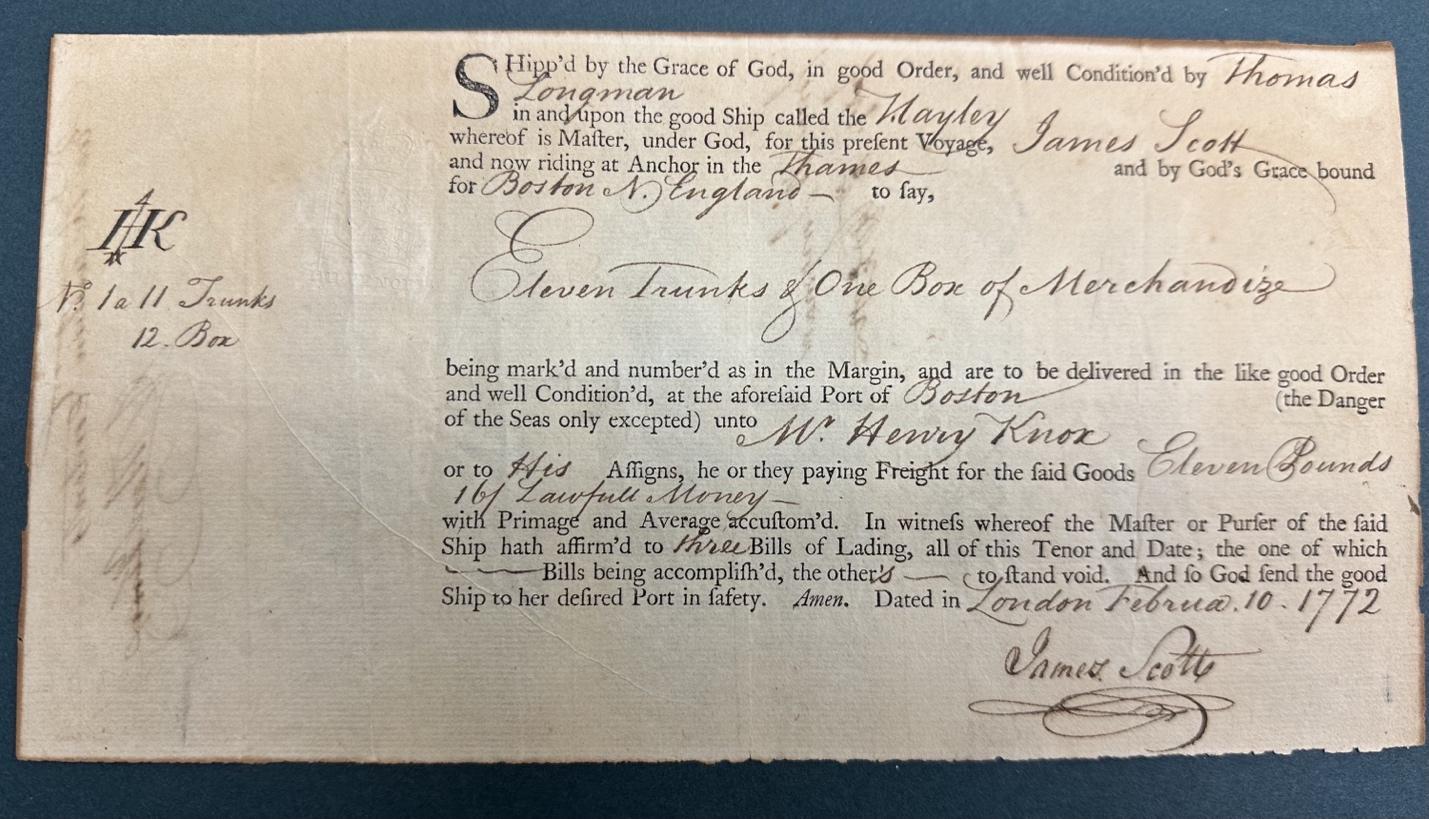 SHipp'd by the Grace of God, in good Order, and well Condition'd by Thomas
Longman
in and upon the good Ship called the Hayley
whereof is Maſter, under God, for this preſent Voyage, James Scott
and now riding at Anchor in the Thames and by God's Grace bound
for Boston N. England — to ſay,
HK
No. 1 a 11 Trunks
12. Box
Eleven Trunks & One Box of Merchandize
being mark'd and number'd as in the Margin, and are to be delivered in the like good Order
and well Condition'd, at the aforeſaid Port of Boston (the Danger
of the Seas only excepted) unto Mr. Henry Knox
or to His Aſſigns, he or they paying Freight for the ſaid Goods Eleven Pounds
16/ Lawfull Money —
with Primage and Average accuſtom'd. In witneſs whereof the Maſter or Purſer of the ſaid
Ship hath affirm'd to three Bills of Lading, all of this Tenor and Date; the one of which
— Bills being accompliſh'd, the other's — to ſtand void. And ſo God ſend the good
Ship to her deſired Port in ſafety. Amen. Dated in London Februa. 10. 1772
James Scott